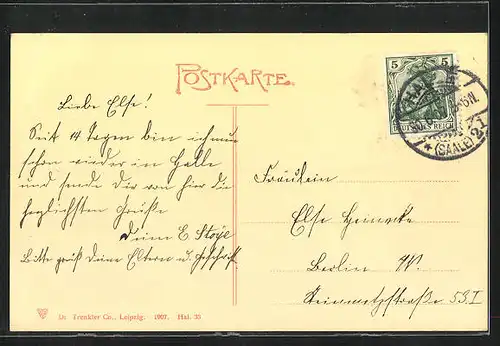 POSTKARTE
5 5
DEUTSCHES REICH
(SAALE)
Liebe Else!
Seit 14 Tagen bin ich nun
schon wieder in Halle
und sende Dir von hier die
herzlichsten Grüße
Deine E.
Bitte grüß Deine Eltern u.
Fräulein
Else Heinecke
Berlin W.
Steinmetzstraße 53 I
Dr. Trenkler Co., Leipzig. 1907. Hal. 35